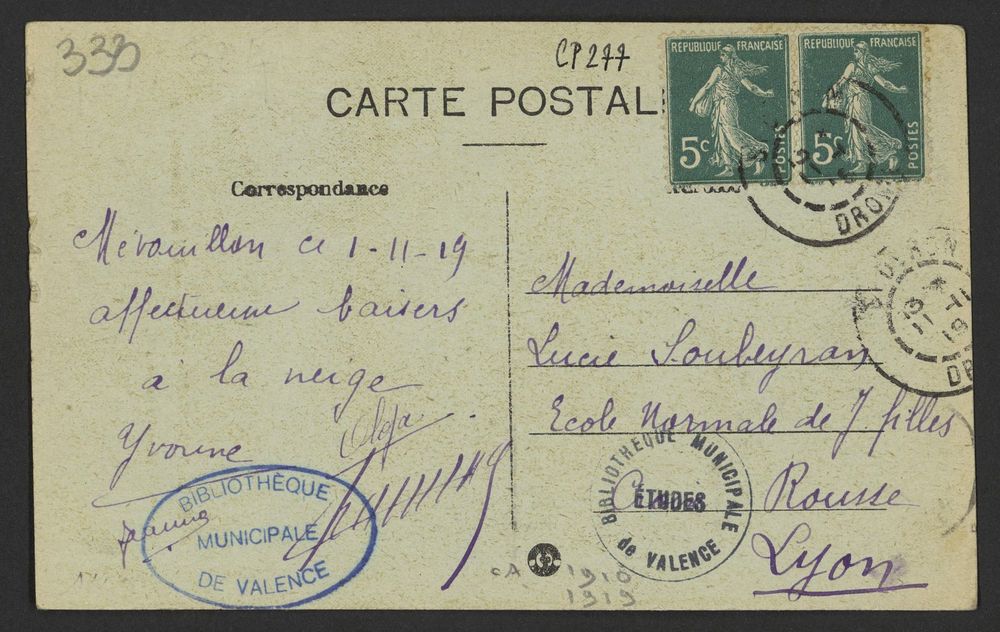 333
CP277
CARTE POSTAL
REPUBLIQUE FRANÇAISE
5c
POSTES
REPUBLIQUE FRANÇAISE
5c
POSTES
DROME
Correspondance
Mévouillon ce 1-11-19
affectueux baisers
à la neige
Yvonne
Olga
Jeanne
Mademoiselle
Lucie Soubeyran
Ecole Normale de J filles
Rousse
Lyon
13
11
19
BIBLIOTHÈQUE
MUNICIPALE
DE VALENCE
BIBLIOTHEQUE MUNICIPALE
ETUDES
de VALENCE
CA
1910
1919